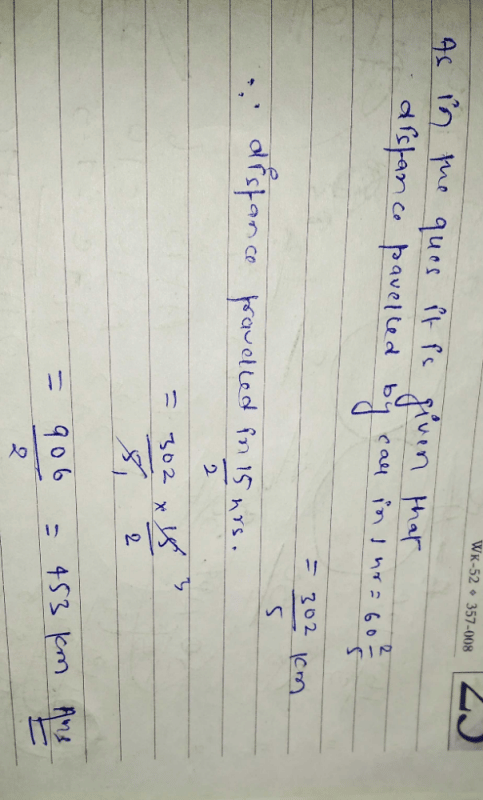 WK-52 • 357-008
25
As in the ques it is given that
distance travelled by car in 1 hr = 60 2/5
= 302/5 km
∵ distance travelled in 15/2 hrs.
= 302/5 1 × 15 3/2
= 906/2 = 453 km Ans